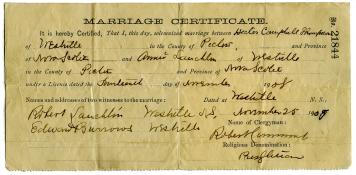 MARRIAGE CERTIFICATE.
No. 21844
It is hereby Certified, That I, this day, solemnized marriage between Hector Campbell
of Westville in the County of Pictou, and Province
of Nova Scotia and Annie Lauchlin of Westville
in the County of Pictou and Province of Nova Scotia
under a Licence dated the day of November 1908
Names and addresses of two witnesses to the marriage: Dated at Westville N. S.,
Robert Lauchlin Westville N.S. November 25 1908
Edward Burrows Westville Name of Clergyman:
Robert
Religious Denomination:
Presbyterian